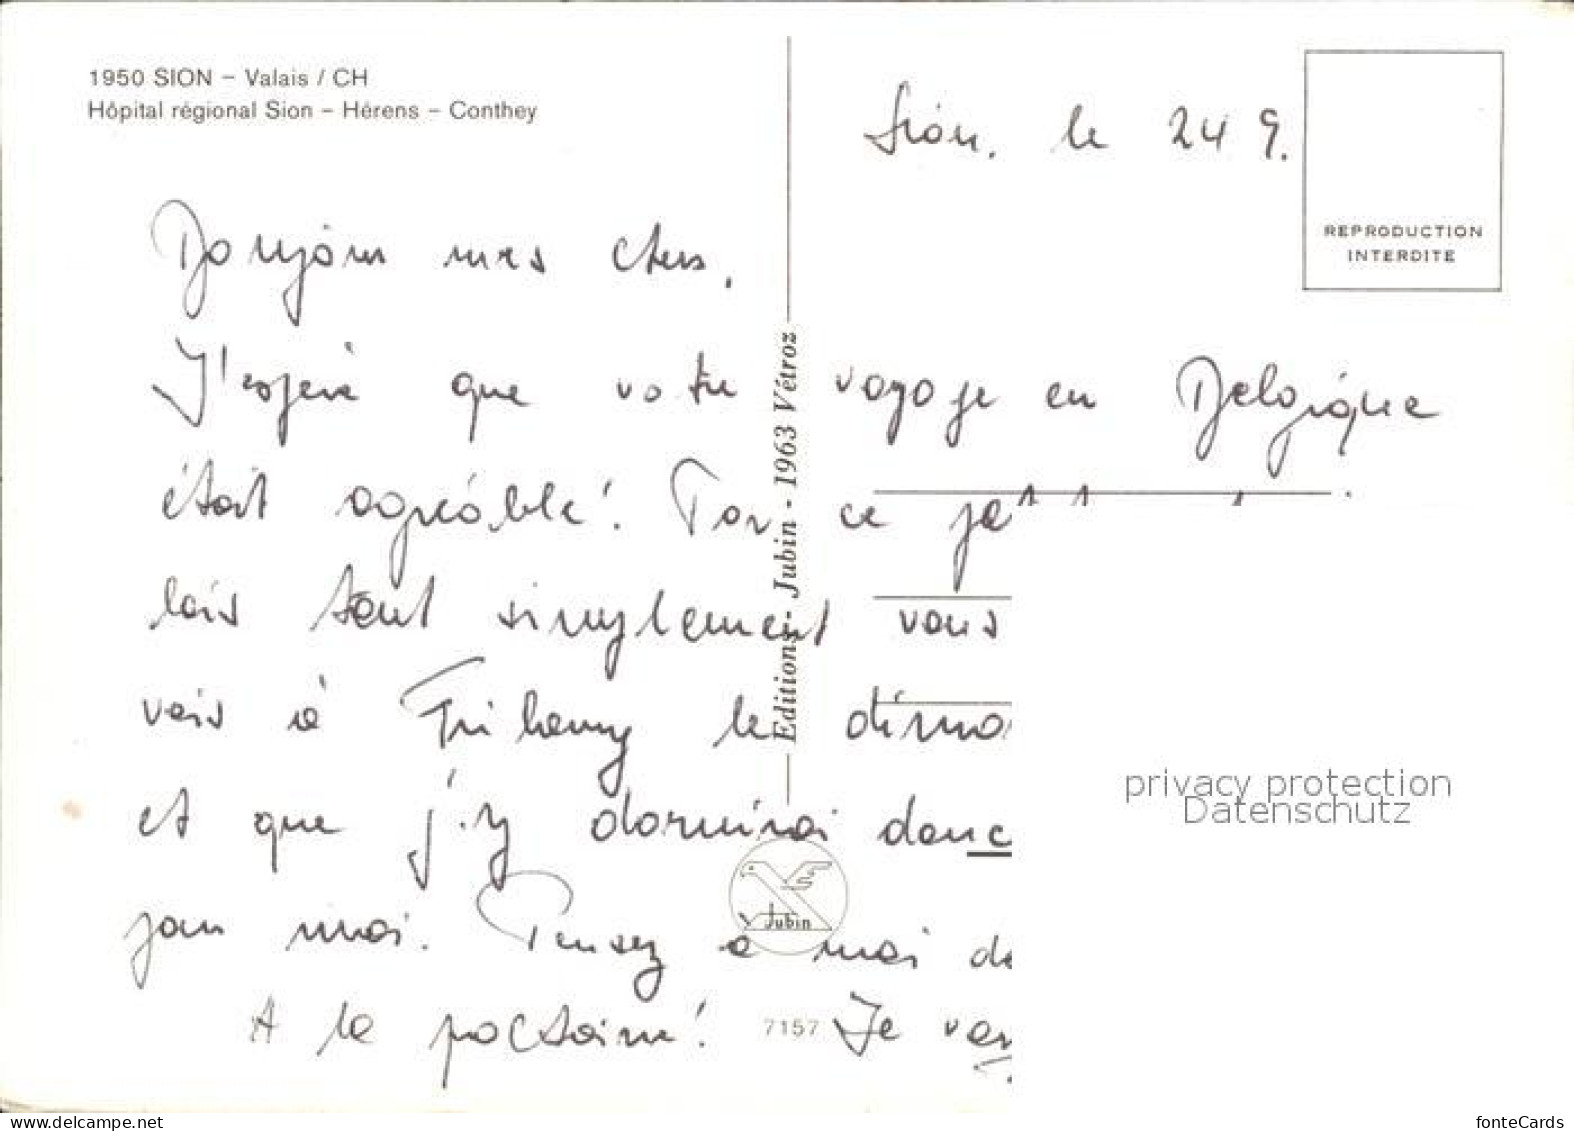 1950 SION – Valais / CH
Hôpital régional Sion – Hérens – Conthey
Sion, le 24 9.
REPRODUCTION
INTERDITE
Bonjour mes chers,
J'espère que votre voyage en Belgique
était agréable! Par ce
lais tout simplement vous
vais à Fribourg le
et que j'y dormirai donc
moi. Pensez à moi
A la prochaine! Je
Editions - Jubin - 1963 Vétroz
Jubin
7157
privacy protection
Datenschutz
www.delcampe.net
fonteCards